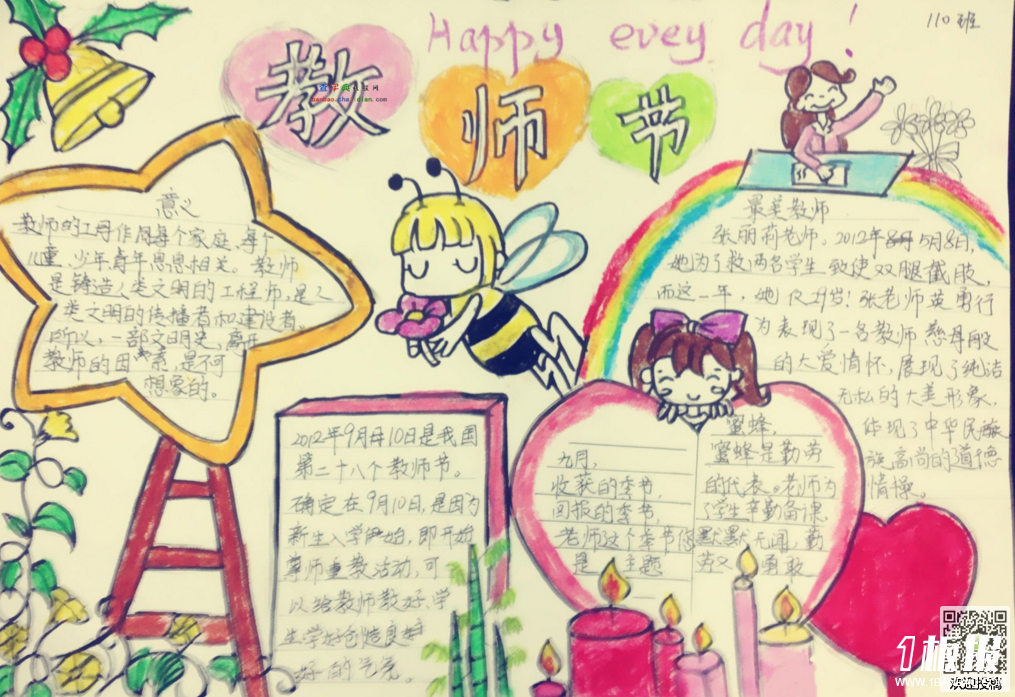 Happy evey day!
110班
教师节
意义
教师的工作同每个家庭、每个
儿童、少年、青年息息相关。教师
是铸造人类文明的工程师，是人
类文明的传播者和建设者。
所以，一部文明史，离开
教师的因素，是不可
想象的。
2012年9月10日是我国
第二十八个教师节。
确定在9月10日，是因为
新生入学伊始，即开始
尊师重教活动，可
以给教师教好、学
生学好创造良好
好的气氛。
九月，
收获的季节，
回报的季节，
老师这个季节你
是 主题
蜜蜂
蜜蜂是勤劳
的代表。老师为
了学生辛勤备课，
默默无闻，勤
劳 勇敢
最美教师
张丽莉老师，2012年5月8日，
她为了救两名学生致使双腿截肢，
而这一年，她仅29岁！张老师英勇行
为表现了一名教师慈母般
的大爱情怀，展现了纯洁
无私的大美形象，
体现了中华民族
族高尚的道德
情操。
1板报